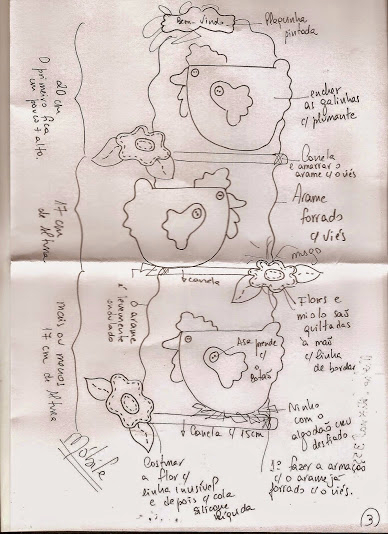 Bem-Vindo
Plaquinha
pintada
encher
as galinhas
c/ plumante
Canela
e amarrar o
arame c/ o viés
Arame
forrado
c/ viés
20 cm
O primeiro fica
um pouco + alto.
17 cm
de altura
mais ou menos
17 cm de altura
Móbile
canela
o arame
é levemente
ondulado
musgo
Flores e
miolo são
quiltadas
a mão
c/ linha
de bordar
Asa prende
c/
o
botão
Ninho
com o
algodão cru
desfiado
Canela c/ 15 cm
Costurar
a flor c/
linha invisível
e depois c/ cola
silicone
líquida
1º fazer a armação
c/ o arame já
forrado c/ o viés.
3